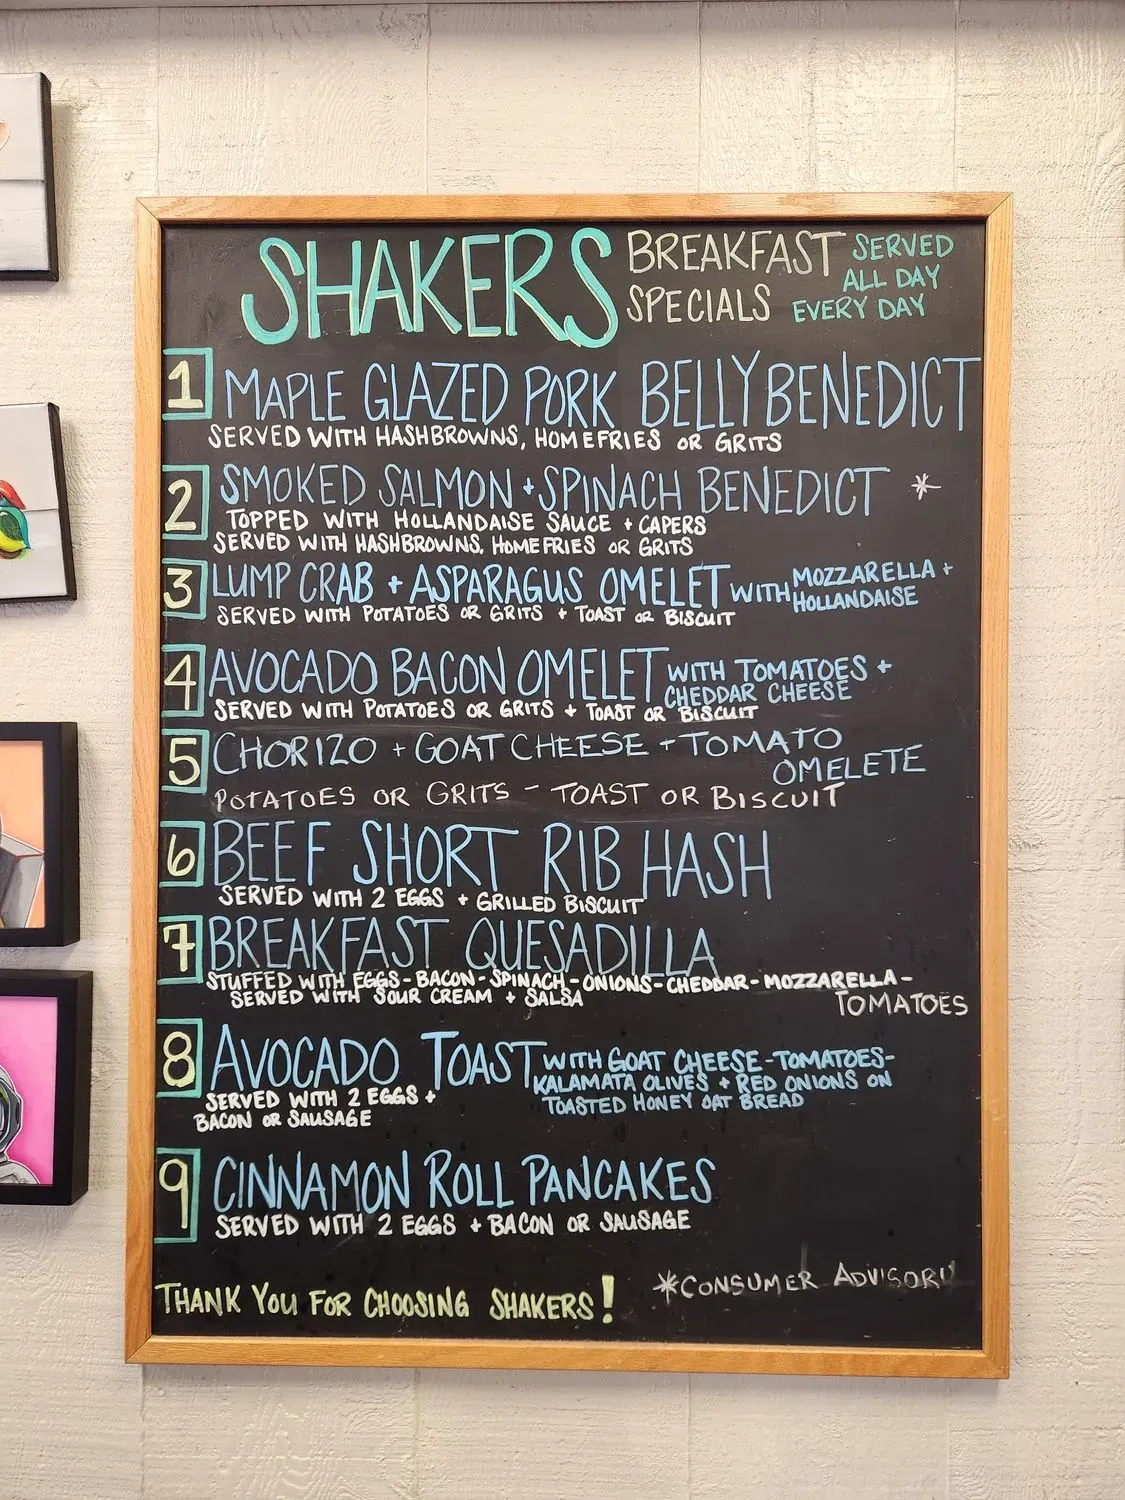 SHAKERS BREAKFAST SPECIALS SERVED ALL DAY EVERY DAY
1 MAPLE GLAZED PORK BELLY BENEDICT
SERVED WITH HASHBROWNS, HOMEFRIES OR GRITS
2 SMOKED SALMON + SPINACH BENEDICT *
TOPPED WITH HOLLANDAISE SAUCE + CAPERS
SERVED WITH HASHBROWNS, HOMEFRIES OR GRITS
3 LUMP CRAB + ASPARAGUS OMELET WITH MOZZARELLA + HOLLANDAISE
SERVED WITH POTATOES OR GRITS + TOAST OR BISCUIT
4 AVOCADO BACON OMELET WITH TOMATOES + CHEDDAR CHEESE
SERVED WITH POTATOES OR GRITS + TOAST OR BISCUIT
5 CHORIZO + GOAT CHEESE + TOMATO
OMELETE
POTATOES OR GRITS - TOAST OR BISCUIT
6 BEEF SHORT RIB HASH
SERVED WITH 2 EGGS + GRILLED BISCUIT
7 BREAKFAST QUESADILLA
STUFFED WITH EGGS - BACON - SPINACH - ONIONS - CHEDDAR - MOZZARELLA -
TOMATOES
SERVED WITH SOUR CREAM + SALSA
8 AVOCADO TOAST WITH GOAT CHEESE - TOMATOES -
KALAMATA OLIVES + RED ONIONS ON
TOASTED HONEY OAT BREAD
SERVED WITH 2 EGGS +
BACON OR SAUSAGE
9 CINNAMON ROLL PANCAKES
SERVED WITH 2 EGGS + BACON OR SAUSAGE
THANK YOU FOR CHOOSING SHAKERS!
*CONSUMER ADVISORY